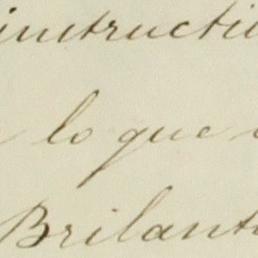 instructi
lo que
Brilant